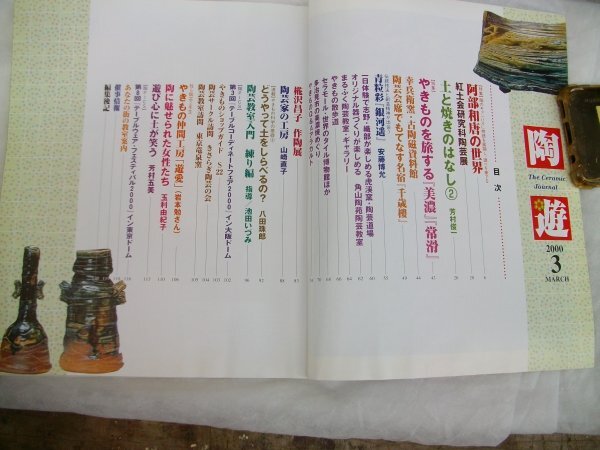 陶遊
The Ceramic
Journal
2000
3
MARCH
目次
阿部和唐の世界
紅土会研究科陶芸展
土と焼きのはなし② 芳村俊一
やきものを旅する『美濃』『常滑』
幸兵衛窯・古陶磁資料館
陶芸会席でもてなす名宿『千歳楼』
青粒彩『銀河遥』 安藤博允
一日体験で志野・織部が楽しめる虎渓窯・陶芸道場
オリジナル器づくりが楽しめる 角山陶苑陶芸教室
まるふく陶芸教室・ギャラリー
やきもの散歩道
セラモール・世界のタイル博物館ほか
椛沢昌子 作陶展
陶芸家の工房 山崎直子
どうやって土をしらべるの? 八田珠郎
陶芸教室入門 練り編 指導/池田いつみ
陶芸教室訪問 東京竜泉窯
やきものショップガイド S・22
第3回「テーブルコーディネートフェア2000」イン大阪ドーム
やきもの仲間工房「遊愛」(岩本勉さん)
陶に魅せられた女性たち 玉利由紀子
遊び心に土が笑う 芳村五美
第8回「テーブルウェア・フェスティバル2000」イン東京ドーム
あなたの街の教室案内
催事情報
編集後記